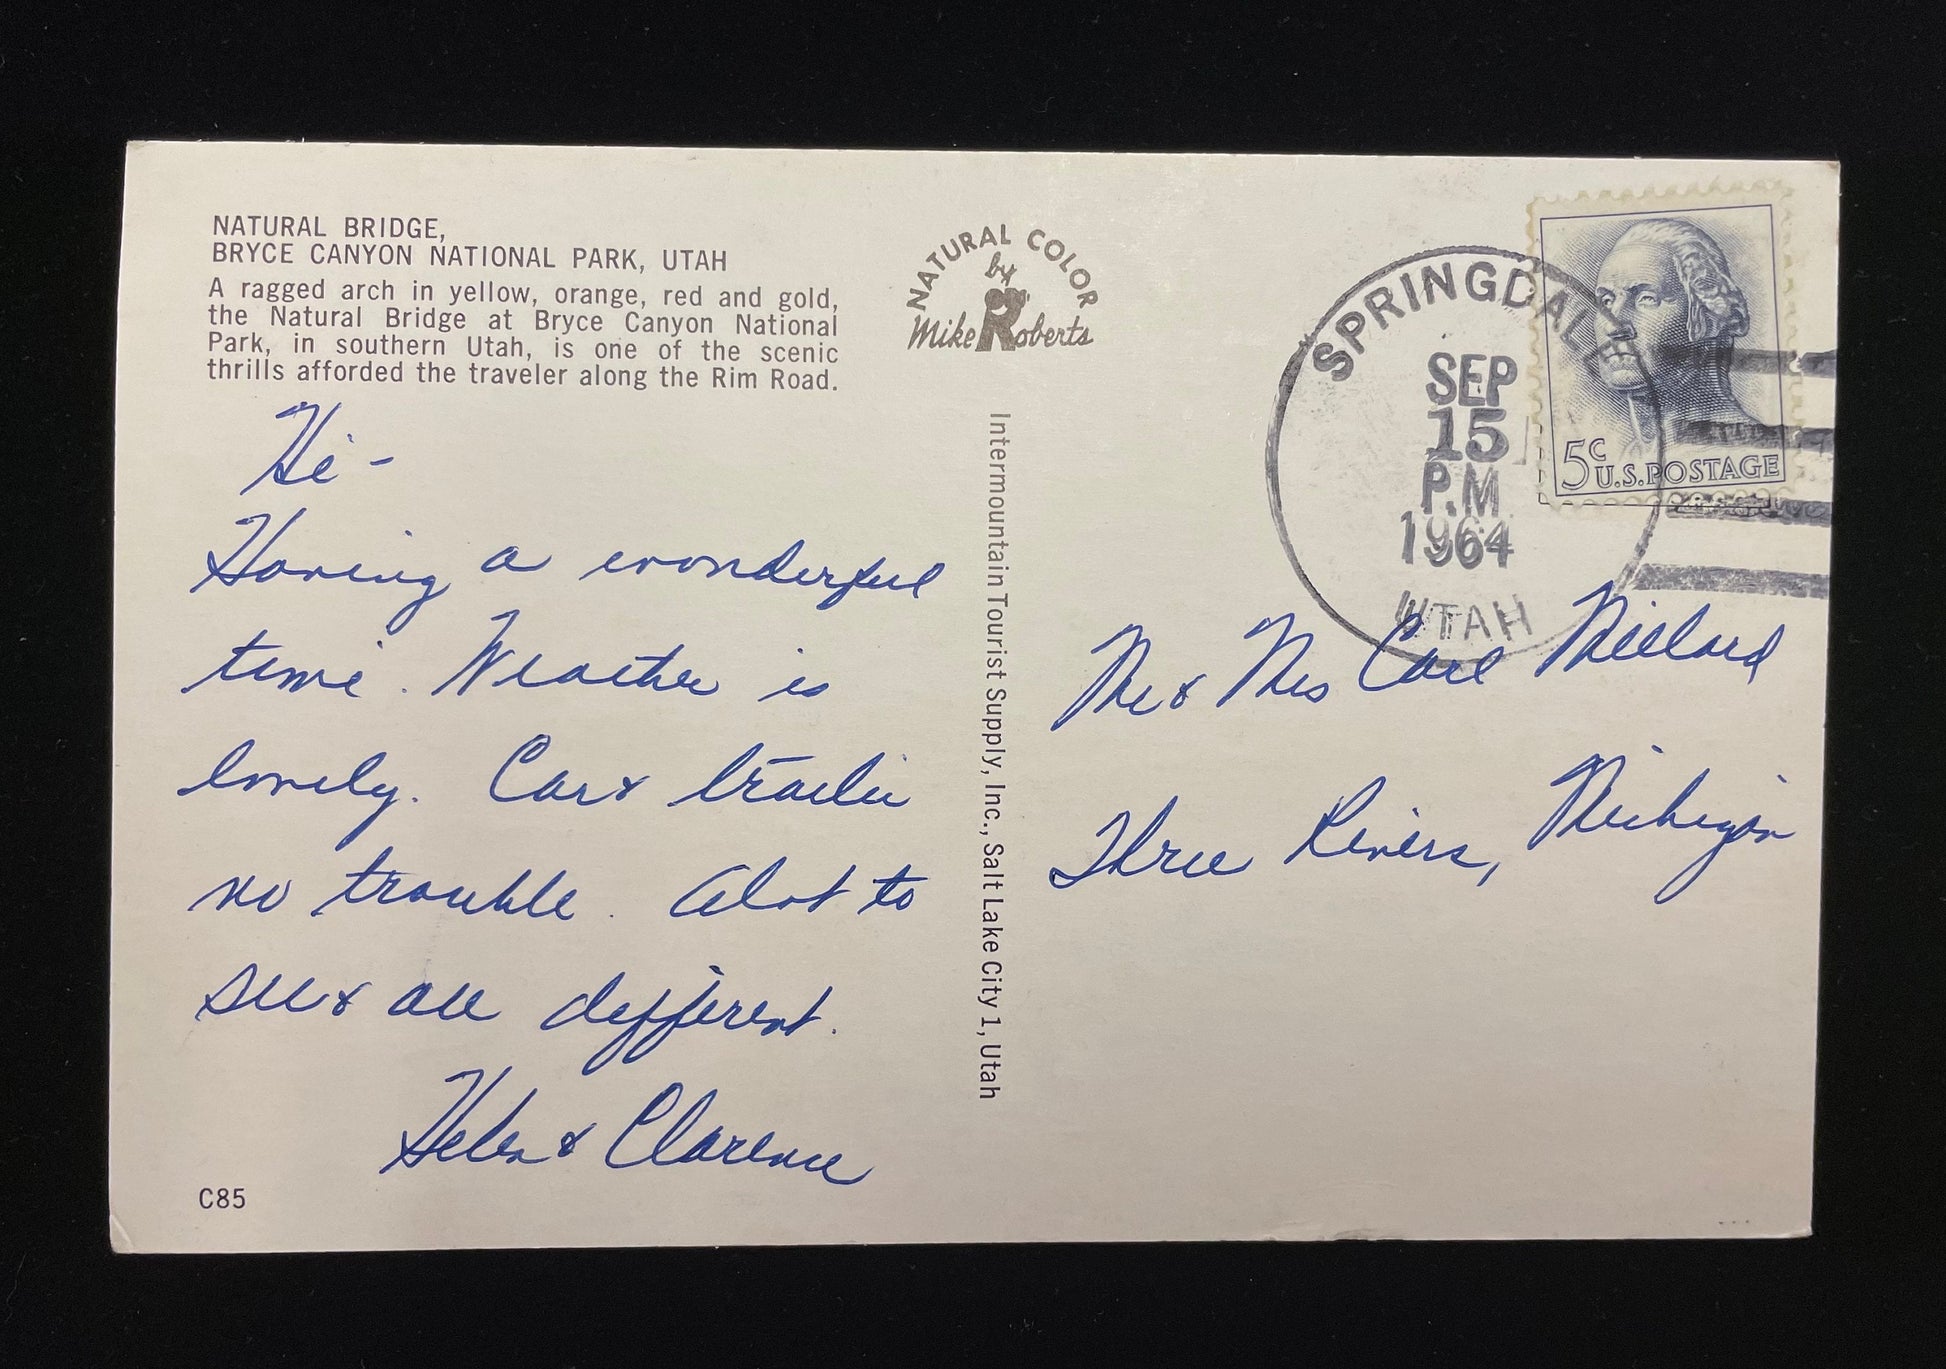 NATURAL BRIDGE,
BRYCE CANYON NATIONAL PARK, UTAH
A ragged arch in yellow, orange, red and gold,
the Natural Bridge at Bryce Canyon National
Park, in southern Utah, is one of the scenic
thrills afforded the traveler along the Rim Road.
Hi -
Having a wonderful
time. Weather is
lovely. Car & trailer
no trouble. Alot to
see & all different.
Helen & Clarence
C85
NATURAL COLOR
by
Mike Roberts
Intermountain Tourist Supply, Inc., Salt Lake City 1, Utah
SPRINGDALE
SEP
15
P.M
1964
UTAH
5c U.S. POSTAGE
Mr & Mrs Carl Millard
Three Rivers, Michigan